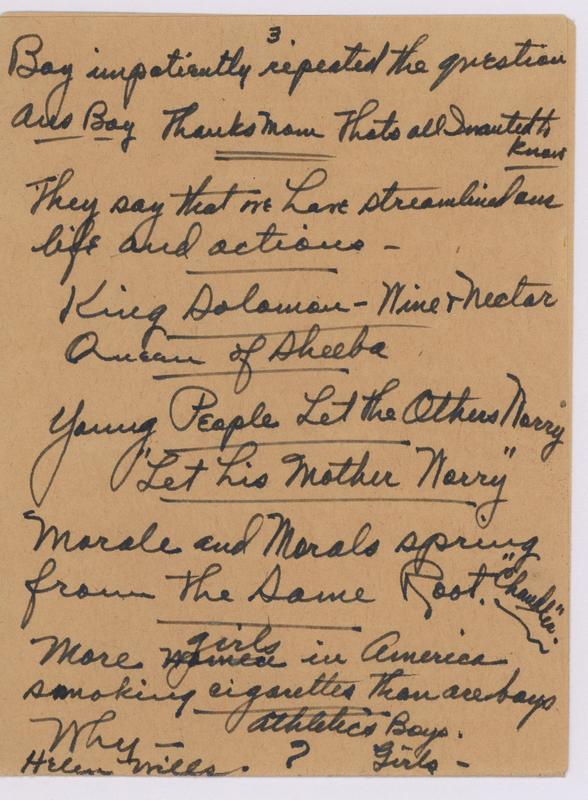 3
Boy impatiently repeated the question
Ans Boy Thanks Mom Thats all I wanted to
Know
They say that we have streamlined our
life and actions -
King Solomon - Wine & Nectar
Queen of Sheeba
Young People Let the Others Worry
"Let his Mother Worry"
Morale and Morals spring
from the Same Root. "Chandler."
girls
More women in America
smoking cigarettes than are boys
Why - athletics Boys.
Helen Wills. ? Girls -